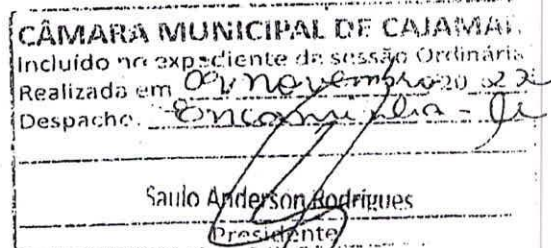 CÂMARA MUNICIPAL DE CAJAMAR
Incluído no expediente da sessão Ordinária
Realizada em 09/novembro/20 22
Despacho. Encaminha-se
Saulo Anderson Rodrigues
Presidente